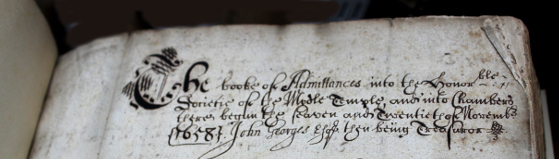 The booke of Admittances into the Honor:ble
Societie of the Midle Temple, and into Chambers
there, begun the Seaven and Twentieth of Novemb:
1658, John Georges Esqr. then being Treasuror